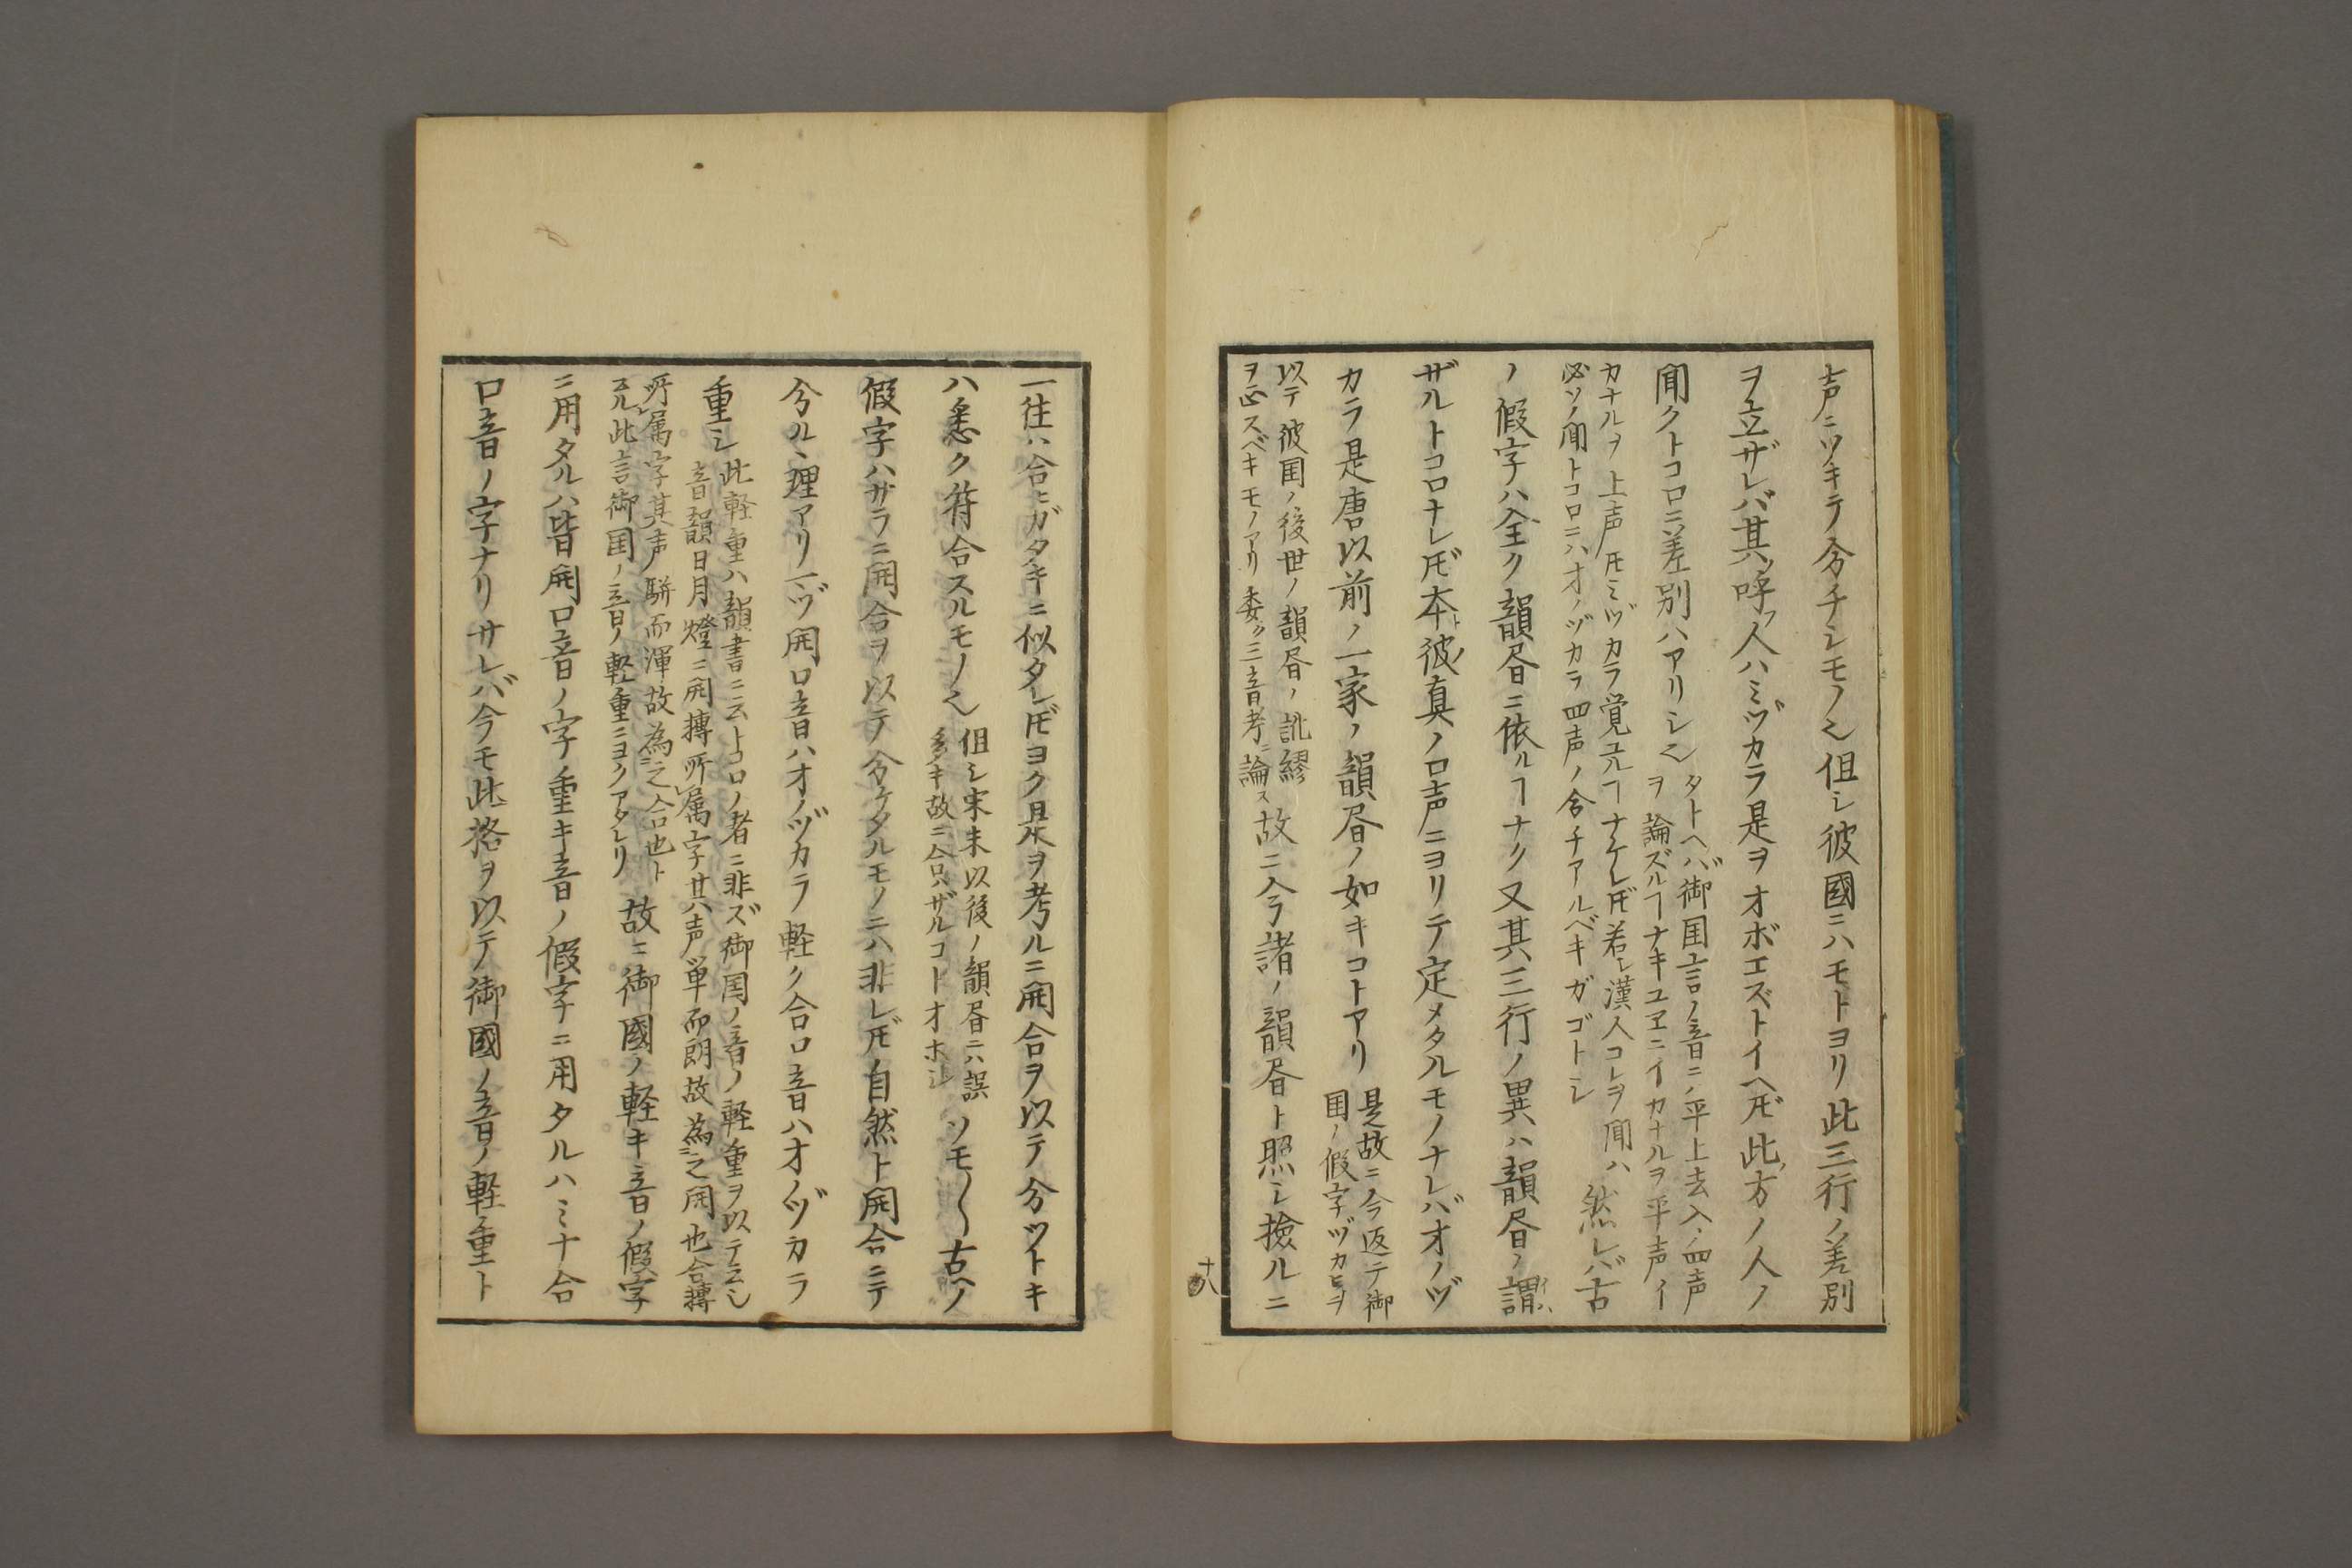 声ニツキテ分チシモノ也但シ彼國ニハモトヨリ此三行ノ差別
ヲ立ザレバ其呼フ人ハミヅカラ是ヲオボエズトイヘ𪜈此方ノ人ノ
聞クトコロニ差別ハアリシ也
タトヘバ御国言ノ音ニノ平上去入ノ四声
ヲ論ズルヿナキユヱニイカナルヲ平声イ
カナルヲ上声𪜈ミヅカラ覚ユルヿナケレ𪜈若シ漢人コレヲ聞ハ
必ソノ聞トコロニハオノヅカラ四声ノ分チアルベキガゴトシ
然レバ古
ノ假字ハ全ク韻昏ニ依ルヿナク又其三行ノ異ハ韻昏ノ謂イハ
ザルトコロナレ𪜈本ト彼ノ真ノ口声ニヨリテ定メタルモノナレバオノヅ
カラ是唐以前ノ一家ノ韻昏ノ如キコトアリ
是故ニ今返テ御
国ノ假字ヅカヒヲ
以テ彼国ノ後世ノ韻昏ノ訛繆
ヲ正スベキモノアリ委ク三音考ニ論ス
故ニ今諸ノ韻昏ト照シ撿ルニ
十八
一往ハ合ヒガタキニ似タレ𪜈ヨク是ヲ考ルニ開合ヲ以テ分ツトキ
ハ悉ク符合スルモノ也
但シ宋朱以後ノ韻昏ニハ誤
多キ故ニ合ハザルコトオホシ
ソモ〱古ヘノ
假字ハサラニ開合ヲ以テ分ケタルモノニハ非レ𪜈自然ト開合ニテ
分ルヽ理アリ一ヅ開口音ハオノヅカラ軽ク合口音ハオノヅカラ
重シ
此軽重ハ韻書ニ云トコロノ者ニ非ズ御国ノ音ノ軽重ヲ以テ云シ
音韻日月燈ニ開轉所属字其ハ声単而朗故為之開也合轉
所属字其声駢而渾故為之合也ト
云ル此言御国ノ音ノ軽重ニヨクアタレリ
故ニ御國ノ軽キ音ノ假字
ニ用タルハ皆開口音ノ字重キ音ノ假字ニ用タルハミナ合
口音ノ字ナリサレバ今モ此格ヲ以テ御國ノ音ノ軽重ト